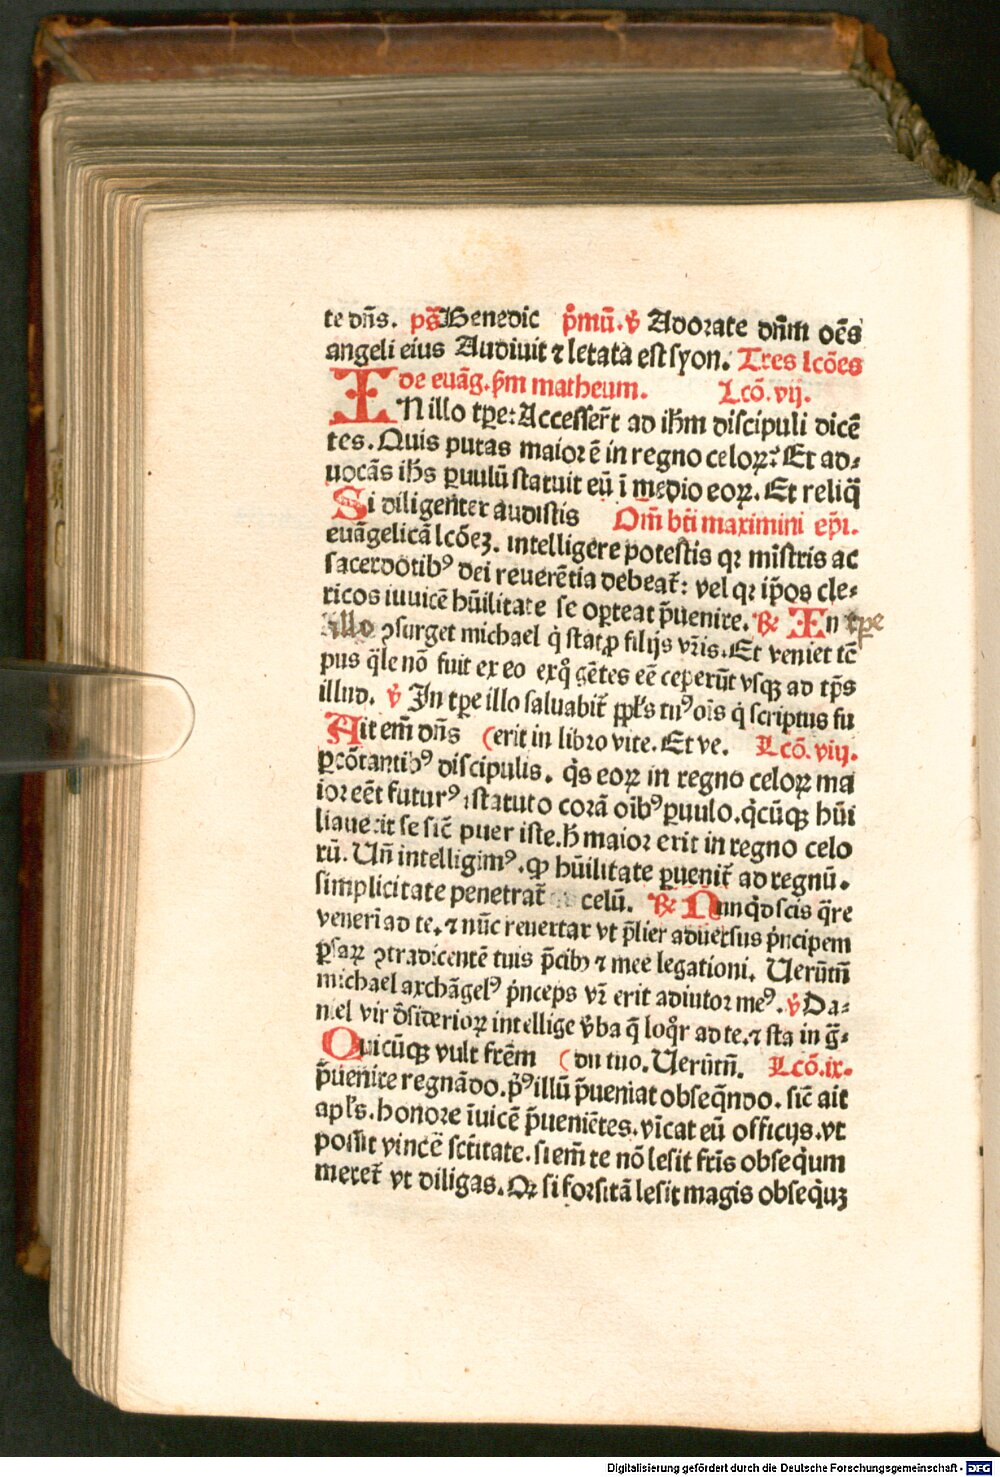 te dn̄s. ps̄ Benedic pͦmū. v̄ Adorate dn̄m oēs
angeli eius Audiuit ⁊ letata est syon. Tres lcōes
de euāg. ẜm matheum. Lcō. vij.
IN illo tꝑe: Accesser̄t ad ihm̄ discipuli dicē
tes. Quis putas maior ē in regno celoꝝ? Et ad⸗
uocās ih̄s ꝑuulū statuit eū ī medio eoꝝ. Et reliq̄
Si diligenter audistis Om̄ bt̄i maximini ep̄i.
euāgelicā lcōeꝫ. intelligere potestis qꝛ mīstris ac
sacerdotibꝰ dei reuerētia debeat̄: vel qꝛ ip̄os cle⸗
ricos iuuicē hūilitate se oꝑteat p̄uenire. ℞ In tꝑe
illo ꝯsurget michael q̇ stat ꝓ filijs vr̄is. Et veniet tē
pus q̄le nō fuit ex eo exq̊ gētes eē ceperūt vsqꝫ ad tp̄s
illud. v̄ In tꝑe illo saluabit̄ ppl̄s tuꝰ oīs q̇ scriptus fu
Ait em̄ dn̄s (erit in libro vite. Et ve. Lcō. viij.
ꝑcōtantibꝰ discipulis. q̇s eoꝝ in regno celoꝝ ma
ior eēt futurꝰ: statuto corā oībꝰ ꝑuulo. q̇cūqꝫ hūi
liauerit se sic̄ puer iste. h̄ maior erit in regno celo
rū. Un̄ intelligimꝰ. ꝙ hūilitate ꝑuenit̄ ad regnū.
simplicitate penetrat̄ celū. ℞ Nunq̇d scis q̄re
veneri ad te. ⁊ nūc reuertar vt p̄lier aduersus ṗncipem
ꝑsaꝝ ꝯtradicentē tuis p̄cibꝫ ⁊ mee legationi. Uerūtm̄
michael archāgelꝰ ṗnceps vr̄ erit adiutor meꝰ. v̄ Da⸗
niel vir d̄sideriorꝝ intellige v̄ba q̄ loq̊r ad te. ⁊ sta in ḡ⸗
Quicūqꝫ vult frēm (du tuo. Uerūtn̄. Lcō. ix.
p̄uenire regnādo. pͥꝰ illū p̄ueniat obseq̄ndo. sic̄ ait
apl̄s. honore īuicē p̄ueniētes. vīcat eū officijs. vt
possit vincē sct̄itate. si em̄ te nō lesit fr̄is obsequ̇m
meret̄ vt diligas. Qꝛ si forsitā lesit magis obsequ̇ꝫ
Digitalisierung gefördert durch die Deutsche Forschungsgemeinschaft - DFG